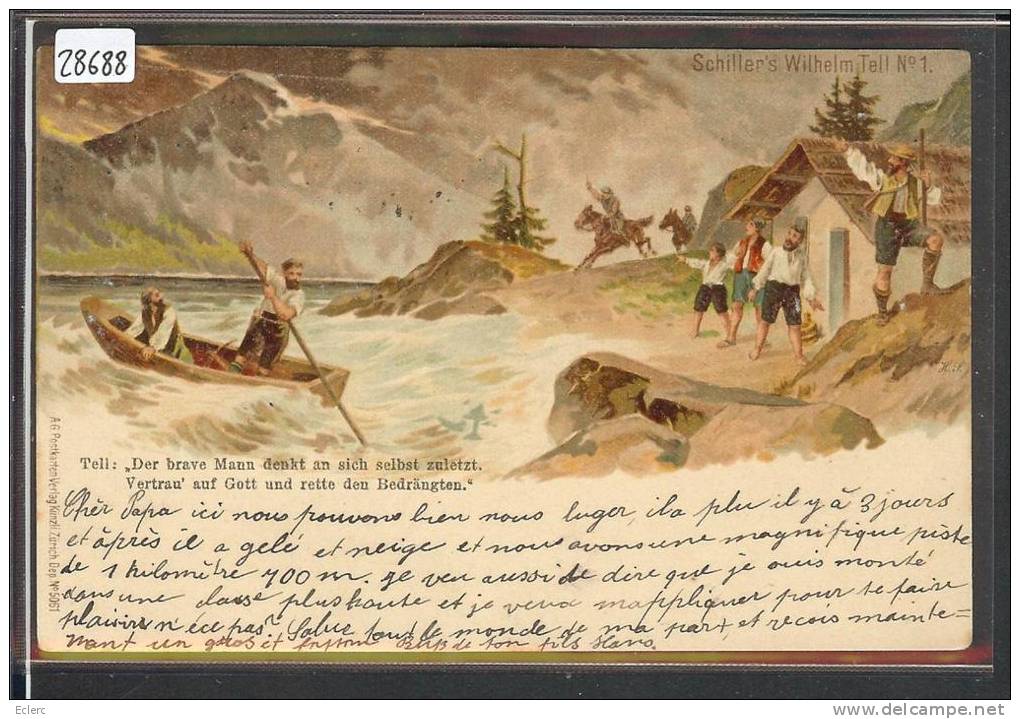 28688
Schiller's Wilhelm Tell No 1.
Tell: „Der brave Mann denkt an sich selbst zuletzt.
Vertrau' auf Gott und rette den Bedrängten."
A.G. Postkarten Verlag Künzli Zürich Dep. No 5061
Chèr Papa ici nous pouvons bien nous luger, il a plu il y à 3 jours
et àprès il a gelé et neige et nous avons une magnifique piste
de 1 kilomètre 700 m. je veu aussi de dire que je suis monté
dans une classe plus haute et je veux m'appliquer pour te faire
plaisir n'ece pas? Salue tout le monde de ma part et recois mainte=
nant un gros et de ton fils Hans.
Eclerc
www.delcampe.net